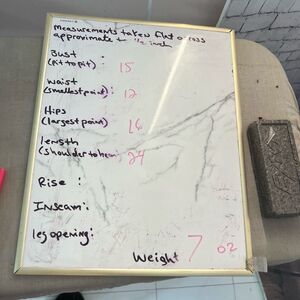 measurements taken flat across
approximate ± 1/2 inch
Bust :
(pit to pit) 15
waist
(smallest point) : 12
Hips
(largest point) 16
length
(shoulder to hem) 24
Rise :
Inseam :
leg opening :
Weight 7 oz